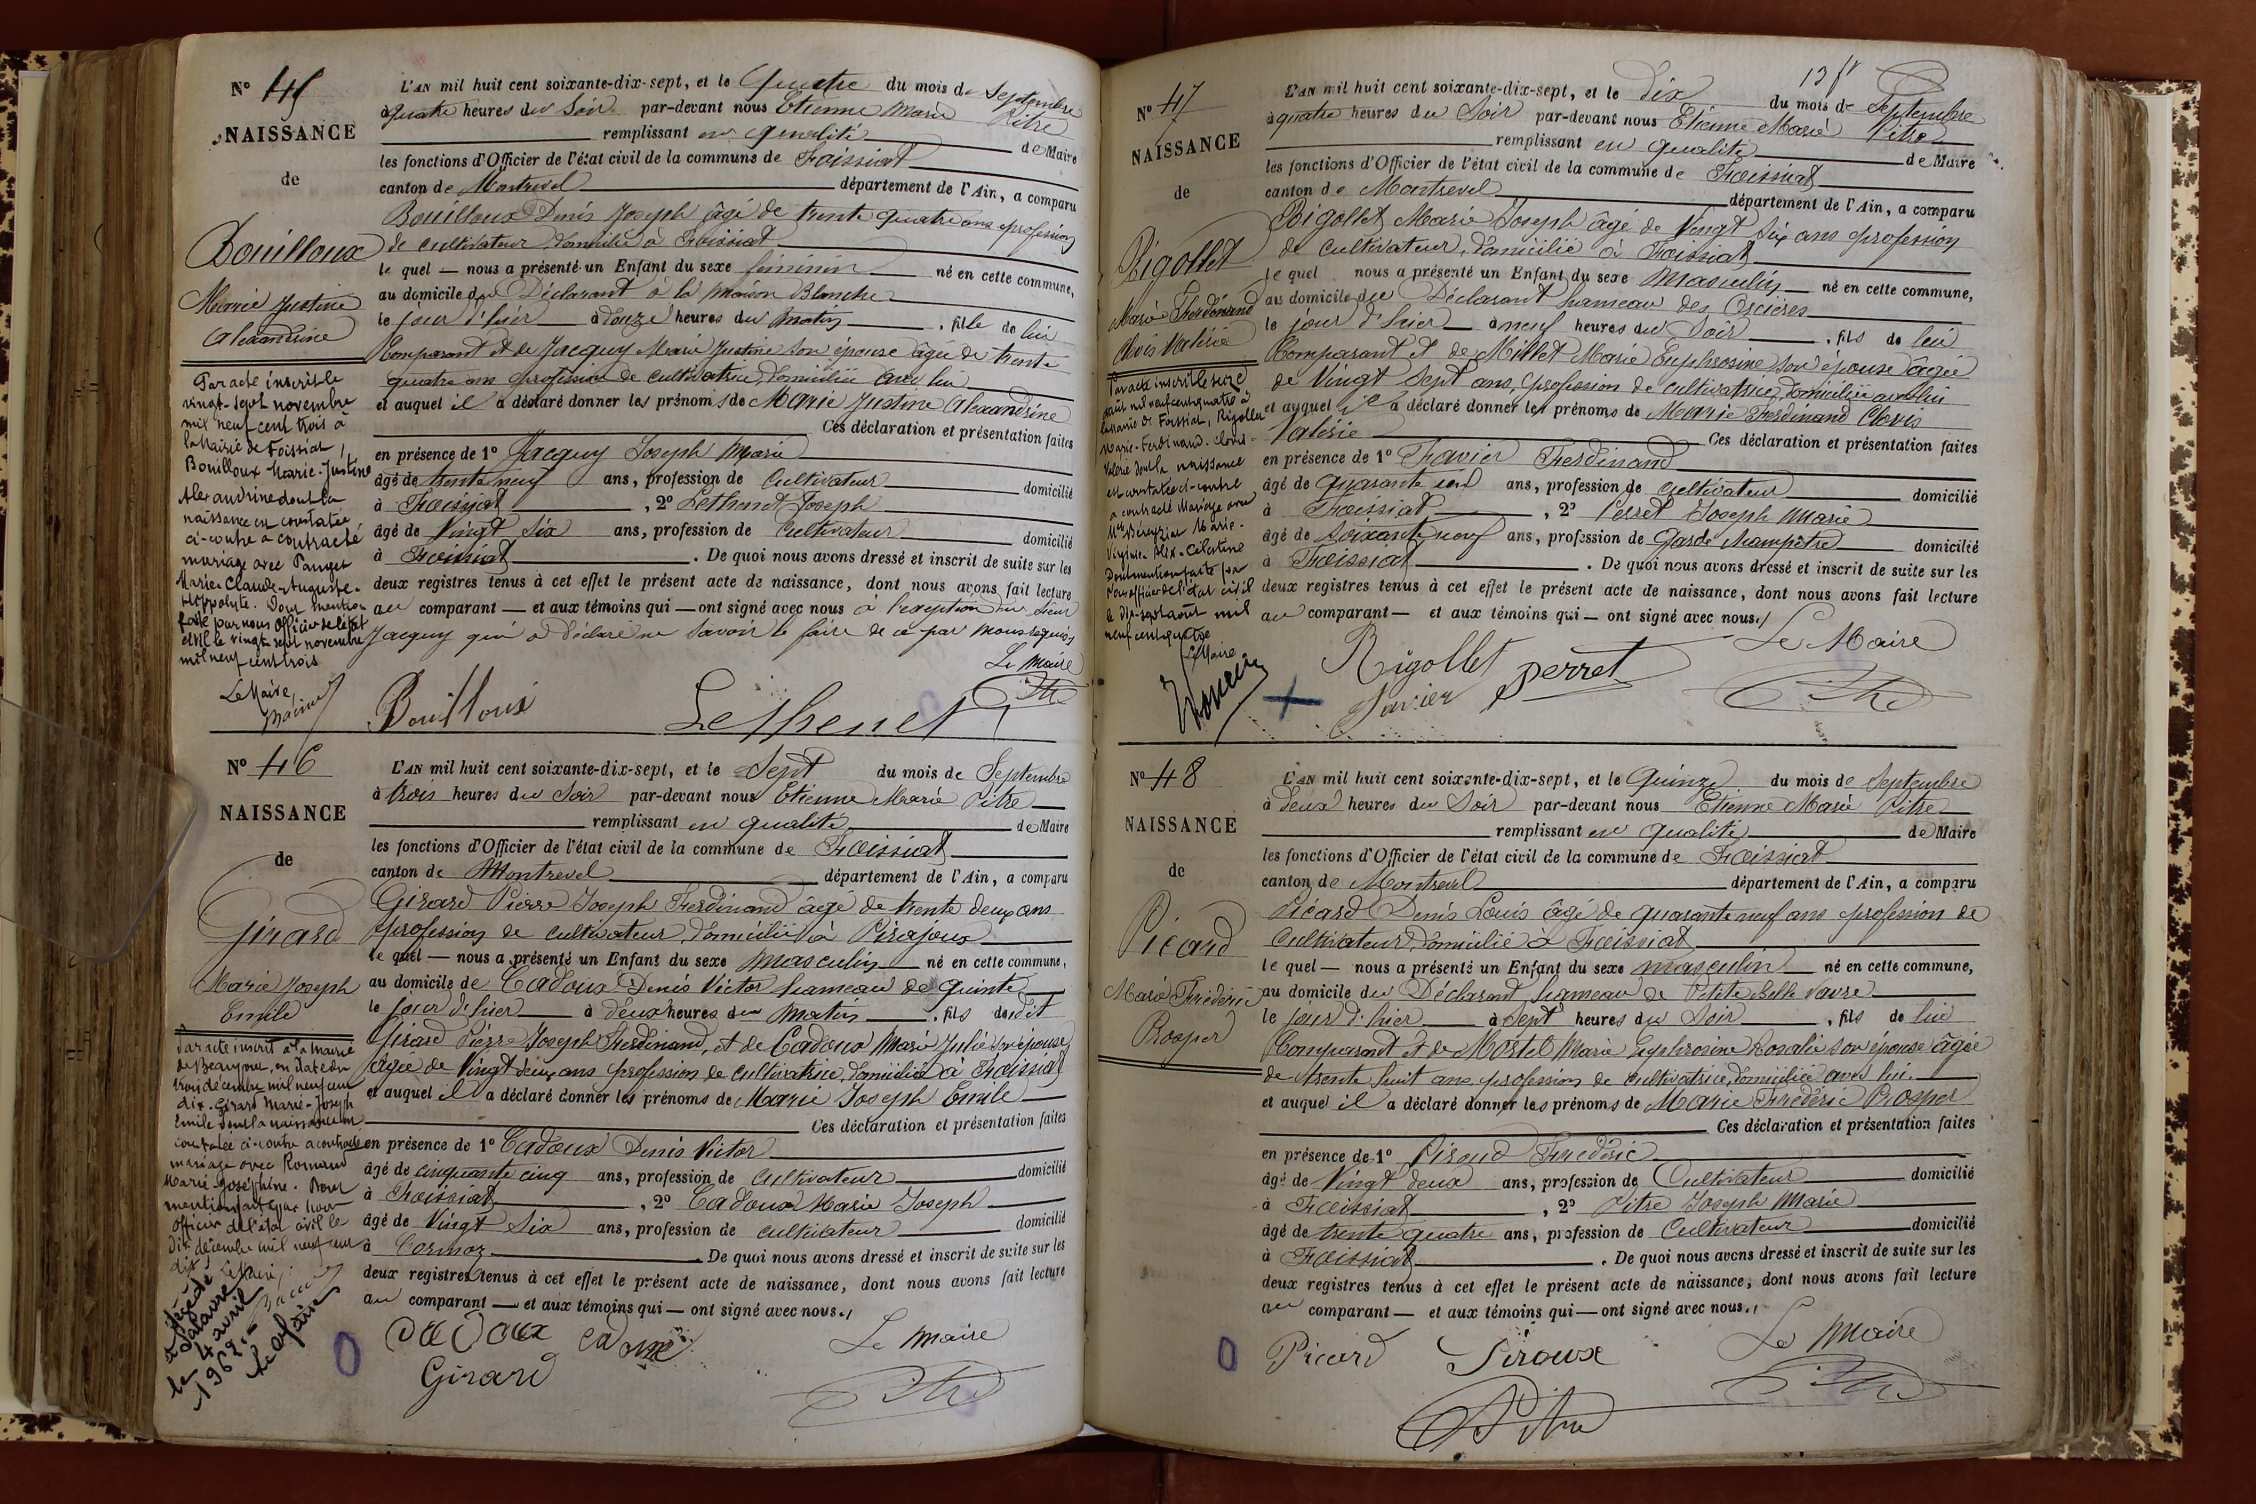 N° 45
NAISSANCE
de
Bouilloux
Marie Justine
Alexandrine
Par acte inscrit le
vingt-sept novembre
mil neuf cent trois à
la Mairie de Foissiat,
Bouilloux Marie-Justine
Alexandrine dont la
naissance est constatée
ci-contre a contracté
mariage avec Pauget
Marie-Claude-Auguste-
Hippolyte. Dont mention
faite par nous officier de l'état
civil le vingt sept novembre
mil neuf cent trois
Le Maire,
L'AN mil huit cent soixante-dix-sept, et le Quatre du mois de Septembre
à quatre heures du Soir par-devant nous Etienne Marie Pitre
remplissant en qualité de Maire
les fonctions d'Officier de l'état civil de la commune de Foissiat
canton de Montrevel département de l'Ain, a comparu
Bouilloux Denis Joseph âgé de trente quatre ans profession
de cultivateur, domicilié à Foissiat
le quel — nous a présenté un Enfant du sexe féminin né en cette commune,
au domicile du Déclarant à la maison Blanche
le jour d'hier à douze heures du matin, fille de lui
Comparant et de Jacquy Marie Justine son épouse âgée de trente
quatre ans profession de cultivatrice, domiciliée avec lui
et auquel il a déclaré donner les prénoms de Marie Justine Alexandrine
Ces déclaration et présentation faites
en présence de 1° Jacquy Joseph Marie
âgé de trente neuf ans, profession de Cultivateur domicilié
à Foissiat, 2° Lethenet Joseph
âgé de Vingt Six ans, profession de Cultivateur domicilié
à Foissiat. De quoi nous avons dressé et inscrit de suite sur les
deux registres tenus à cet effet le présent acte de naissance, dont nous avons fait lecture
au comparant — et aux témoins qui — ont signé avec nous à l'exception du sieur
Jacquy qui a déclaré ne savoir le faire de ce par nous requis
Le Maire
Bouilloux Lethenet Pitre
N° 46
NAISSANCE
de
Girard
Marie Joseph
Emile
Par acte inscrit à la mairie
de Beaupont, en date du
trois décembre mil neuf cent
dix. Girard Marie-Joseph
Emile dont la naissance est
constatée ci-contre a contracté
mariage avec Romand
Marie-Joséphine. Dont
mention faite par nous
officier de l'état civil le
dix décembre mil neuf cent
dix
Le Maire,
Décédé
à Salavre
le 4 avril
1962.-
Le Maire
L'AN mil huit cent soixante-dix-sept, et le Sept du mois de Septembre
à trois heures du Soir par-devant nous Etienne Marie Pitre
remplissant en qualité de Maire
les fonctions d'Officier de l'état civil de la commune de Foissiat
canton de Montrevel département de l'Ain, a comparu
Girard Pierre Joseph Ferdinand âgé de trente deux ans
profession de cultivateur, domicilié à Pirajoux
le quel — nous a présenté un Enfant du sexe masculin né en cette commune,
au domicile de Cadoux Denis Victor hameau de Quinte
le jour d'hier à deux heures du matin, fils du dit
Girard Pierre Joseph Ferdinand, et de Cadoux Marie Julie son épouse
âgée de Vingt deux ans profession de cultivatrice, domiciliée à Foissiat
et auquel il a déclaré donner les prénoms de Marie Joseph Emile
Ces déclaration et présentation faites
en présence de 1° Cadoux Denis Victor
âgé de cinquante cinq ans, profession de Cultivateur domicilié
à Foissiat, 2° Cadoux Marie Joseph
âgé de Vingt Six ans, profession de cultivateur domicilié
à Cormoz. De quoi nous avons dressé et inscrit de suite sur les
deux registres tenus à cet effet le présent acte de naissance, dont nous avons fait lecture
au comparant — et aux témoins qui — ont signé avec nous.
Cadoux Cadoux Le Maire
Girard Pitre
N° 47
NAISSANCE
de
Rigollet
Marie Ferdinand
Clovis Valérie
Par acte inscrit le seize
août mil neuf cent quatre à
la mairie de Foissiat, Rigollet
Marie-Ferdinand-Clovis-
Valérie dont la naissance
est constatée ci-contre
a contracté mariage avec
Dont mention faite par
nous officier de l'état civil
le dix-sept août mil
neuf cent quatre
Le Maire
L'AN mil huit cent soixante-dix-sept, et le Dix du mois de Septembre
à quatre heures du Soir par-devant nous Etienne Marie Pitre
remplissant en qualité de Maire
les fonctions d'Officier de l'état civil de la commune de Foissiat
canton de Montrevel département de l'Ain, a comparu
Rigollet Marie Joseph âgé de Vingt Six ans profession
de cultivateur, domicilié à Foissiat
le quel nous a présenté un Enfant du sexe Masculin né en cette commune,
au domicile du Déclarant hameau des Orcières
le jour d'hier à neuf heures du Soir, fils de lui
Comparant et de Millet Marie Euphrosine son épouse âgée
de Vingt Sept ans, profession de cultivatrice, domiciliée avec lui
et auquel il a déclaré donner les prénoms de Marie Ferdinand Clovis
Valérie Ces déclaration et présentation faites
en présence de 1° Favier Ferdinand
âgé de quarante un ans, profession de cultivateur domicilié
à Foissiat, 2° Perret Joseph Marie
âgé de soixante neuf ans, profession de Garde champêtre domicilié
à Foissiat. De quoi nous avons dressé et inscrit de suite sur les
deux registres tenus à cet effet le présent acte de naissance, dont nous avons fait lecture
au comparant — et aux témoins qui — ont signé avec nous.
Le Maire
Rigollet Perret
Favier Pitre
N° 48
NAISSANCE
de
Picard
Marie Frédéric
Prosper
L'AN mil huit cent soixante-dix-sept, et le Quinze du mois de Septembre
à deux heures du Soir par-devant nous Etienne Marie Pitre
remplissant en qualité de Maire
les fonctions d'Officier de l'état civil de la commune de Foissiat
canton de Montrevel département de l'Ain, a comparu
Picard Denis Louis âgé de quarante neuf ans profession de
Cultivateur, domicilié à Foissiat
le quel — nous a présenté un Enfant du sexe masculin né en cette commune,
au domicile du Déclarant, hameau de Petite Belle Vavre
le jour d'hier à Sept heures du Soir, fils de lui
Comparant et de Mortel Marie Euphrosine Rosalie son épouse âgée
de trente huit ans, profession de cultivatrice, domiciliée avec lui.
et auquel il a déclaré donner les prénoms de Marie Frédéric Prosper
Ces déclaration et présentation faites
en présence de 1° Piroud Frédéric
âgé de Vingt deux ans, profession de Cultivateur domicilié
à Foissiat, 2° Pitre Joseph Marie
âgé de trente quatre ans, profession de Cultivateur domicilié
à Foissiat. De quoi nous avons dressé et inscrit de suite sur les
deux registres tenus à cet effet le présent acte de naissance, dont nous avons fait lecture
au comparant — et aux témoins qui — ont signé avec nous.
Le Maire
Picard Piroux Pitre
Pitre